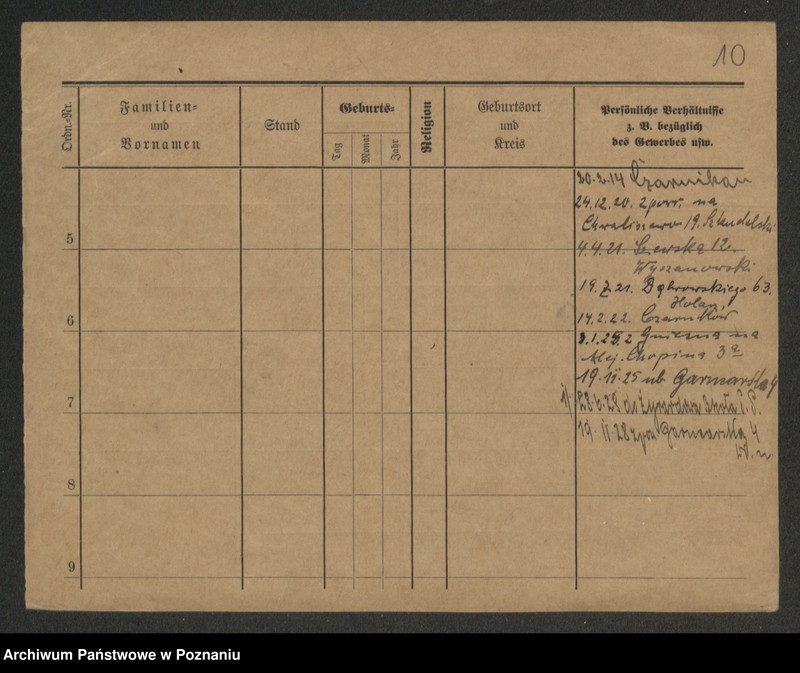 10
Ordn.-Nr.
Familien-
und
Vornamen
Stand
Geburts-
Tag
Monat
Jahr
Religion
Geburtsort
und
Kreis
Persönliche Verhältnisse
z. B. bezüglich
des Gewerbes usw.
20.2.14 Czarnikau
24.12.20. z pow. na
Chwaliszewo 19. Szkudelski
5
4.4.21. Szewska 12.
Wyszanowski
19.7.21. Dąbrowskiego 63.
6
14.2.22. Czarnków
Gniezna na
Alej. Chopina 3a
19.11.25 ub Garmarska 4
7
28.6.28 do
19.11.28 z Garmarska 4
8
9
Archiwum Państwowe w Poznaniu